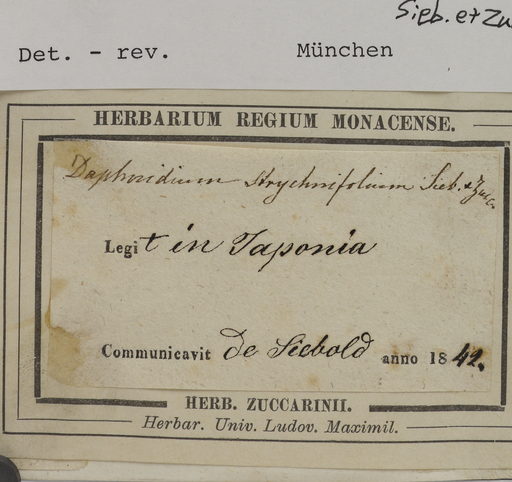 Sieb. et Zu
Det. - rev. München
HERBARIUM REGIUM MONACENSE.
Daphnidium strychnifolium Sieb. & Zucc.
Legit in Japonia
Communicavit de Siebold anno 1842.
HERB. ZUCCARINII.
Herbar. Univ. Ludov. Maximil.